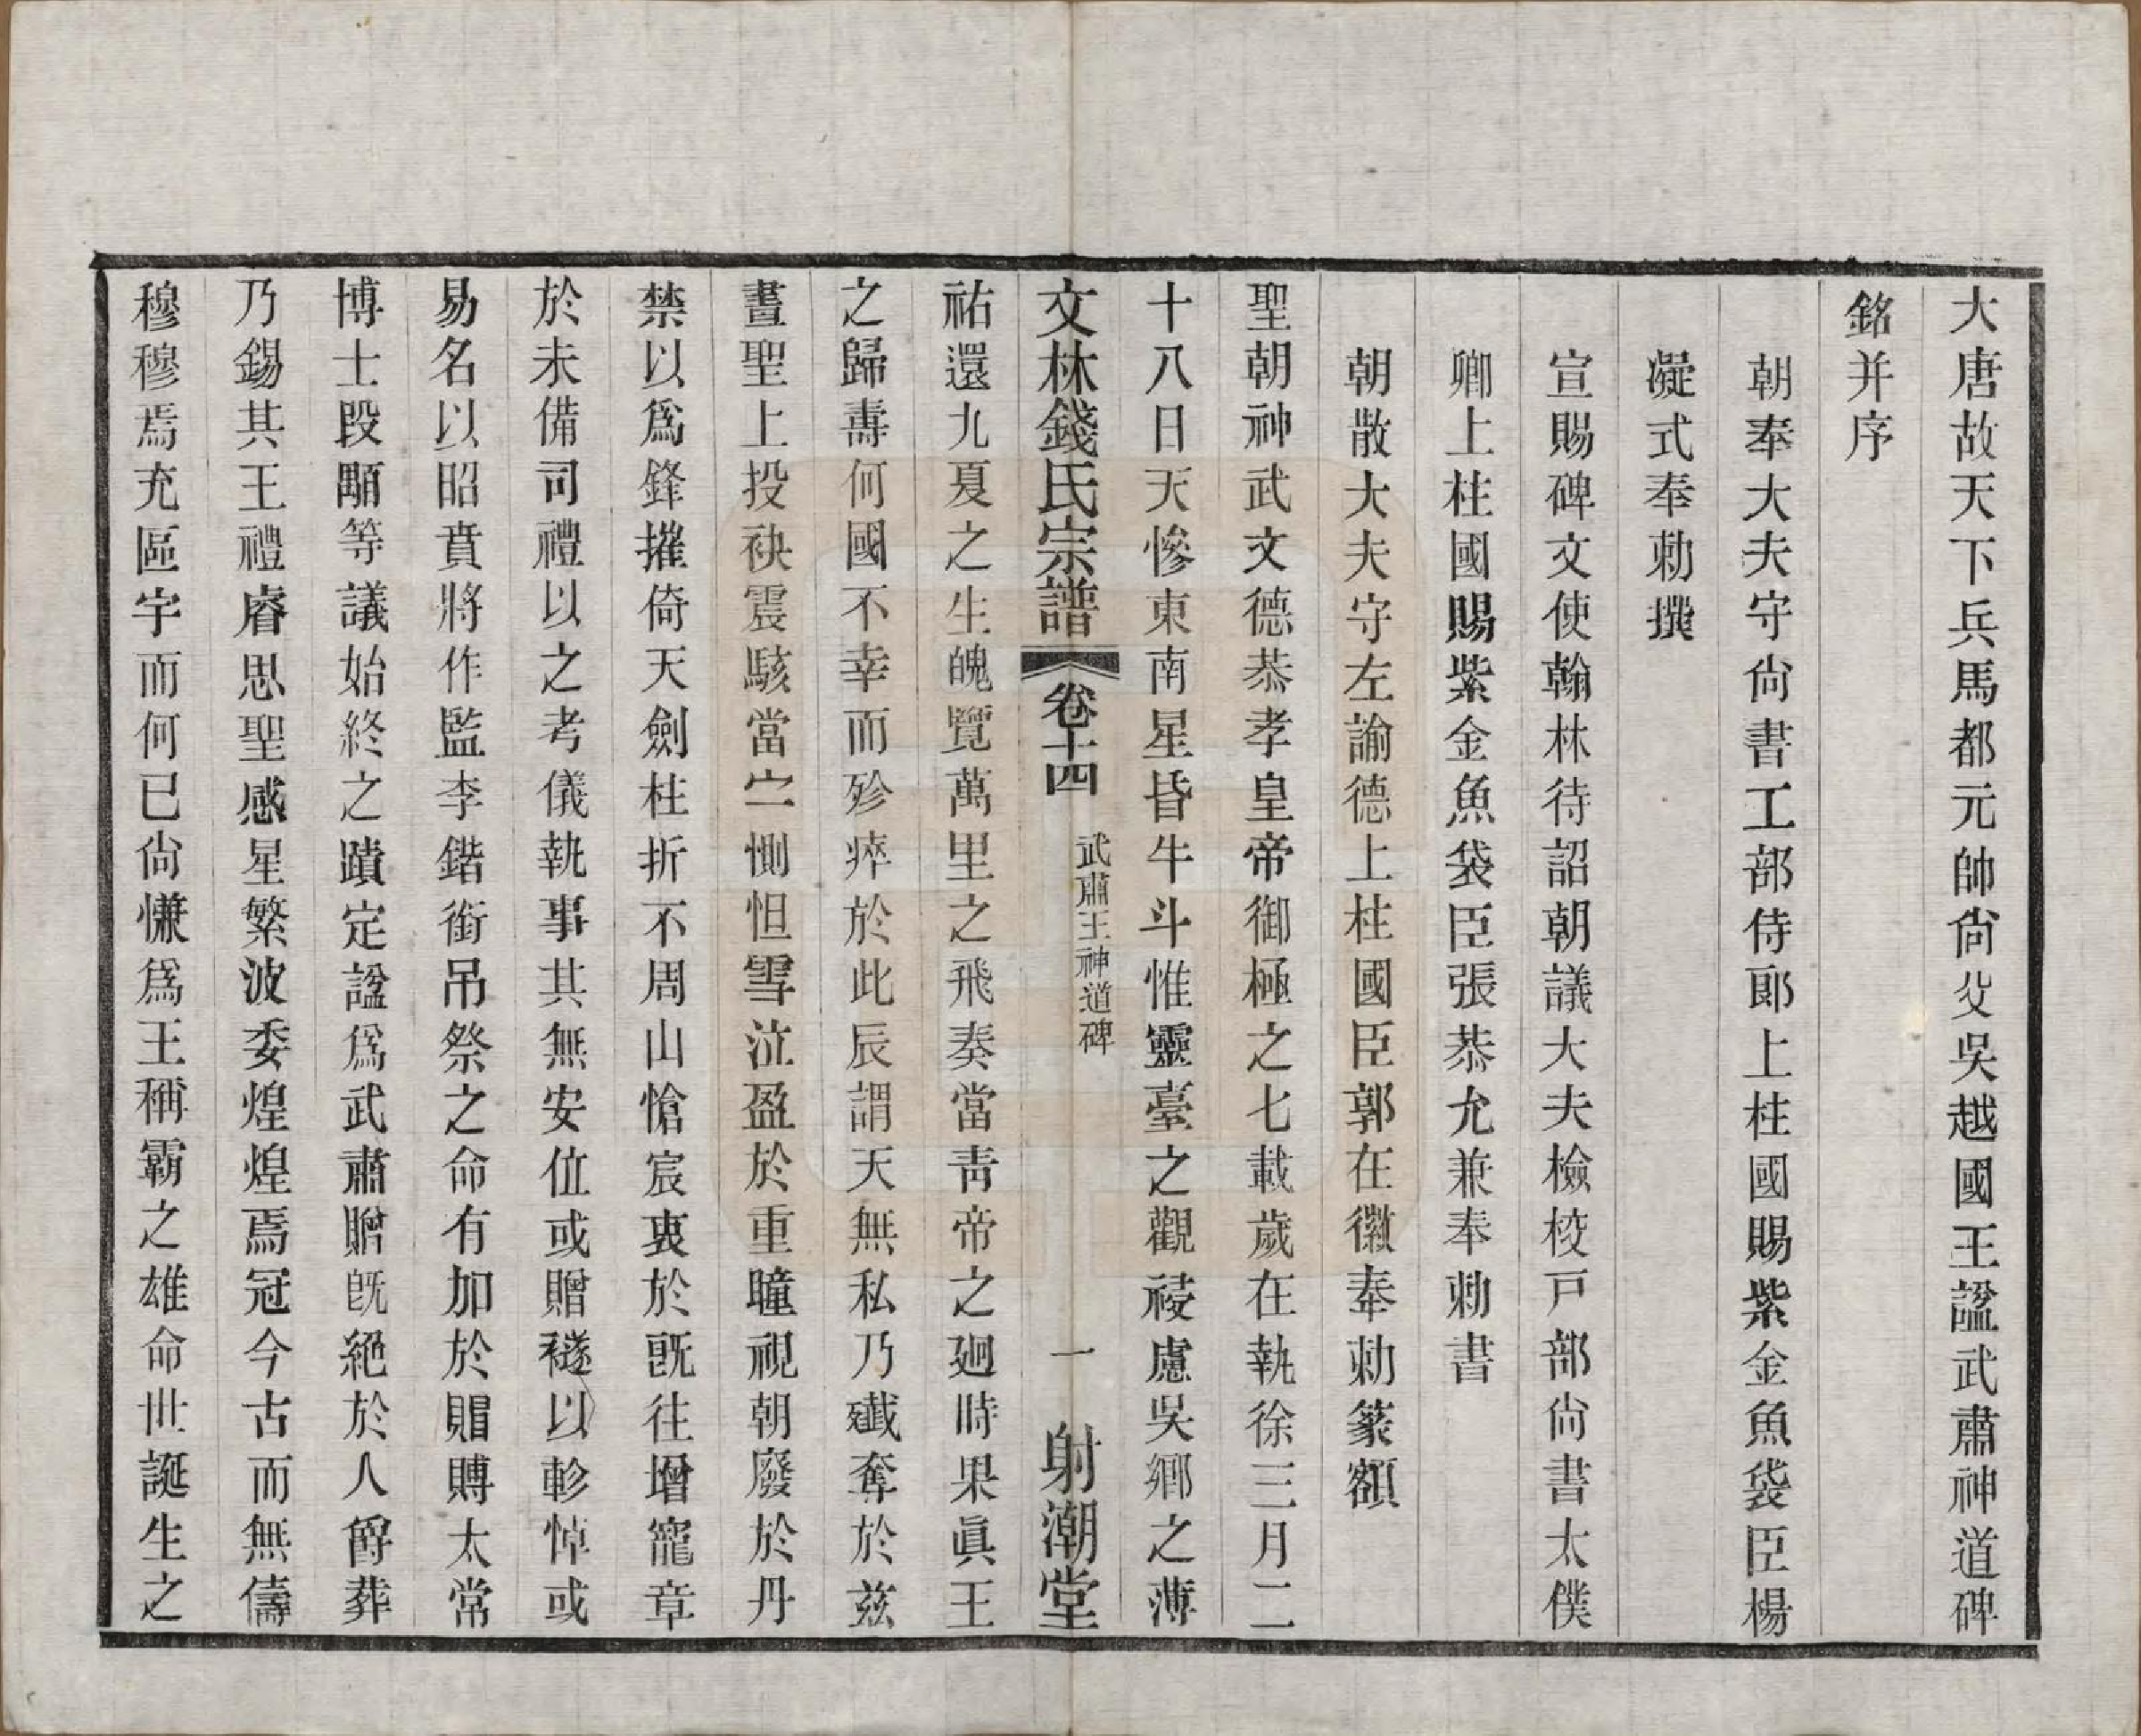 大唐故天下兵馬都元帥尙父吳越國王諡武肅神道碑
銘并序
朝奉大夫守尙書工部侍郞上柱國賜紫金魚袋臣楊
凝式奉勅撰
宣賜碑文使翰林待詔朝議大夫檢校戸部尙書太僕
卿上柱國賜紫金魚袋臣張恭允兼奉勅書
朝散大夫守左諭德上柱國臣郭在徽奉勅篆額
聖朝神武文德恭孝皇帝御極之七載歲在執徐三月二
十八日天慘東南星昏牛斗惟靈臺之觀祲慮吳鄕之薄
文林錢氏宗譜 卷十四 武肅王神道碑 一 射潮堂
祐還九夏之生魄覽萬里之飛奏當靑帝之廻時果眞王
之歸壽何國不幸而殄瘁於此辰謂天無私乃殲奪於兹
晝聖上投袂震駭當宁惻怛雪泣盈於重瞳視朝廢於丹
禁以爲鋒摧倚天劍柱折不周山愴宸衷於旣往增寵章
於未備司禮以之考儀執事其無安位或贈襚以軫悼或
易名以昭賁將作監李鍇銜吊祭之命有加於賵賻太常
博士段顒等議始終之蹟定諡爲武肅贈旣絶於人爵葬
乃錫其王禮睿思聖感星繁波委煌煌焉冠今古而無儔
穆穆焉充區宇而何已尙慊爲王稱霸之雄命世誕生之